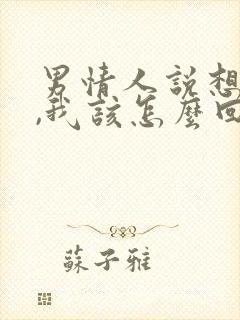 男情人說想
,我該怎麼回
蘇子雅